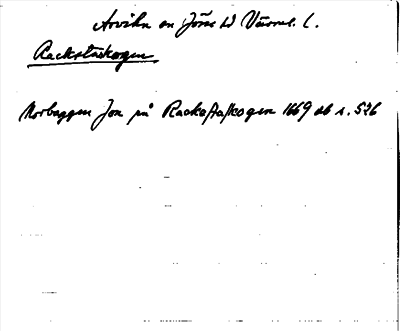 Arvika sn Jösse hd Värml. l.
Rackstaskogen
Norbaggen Jon på Rackstaskogen 1669 db s. 526